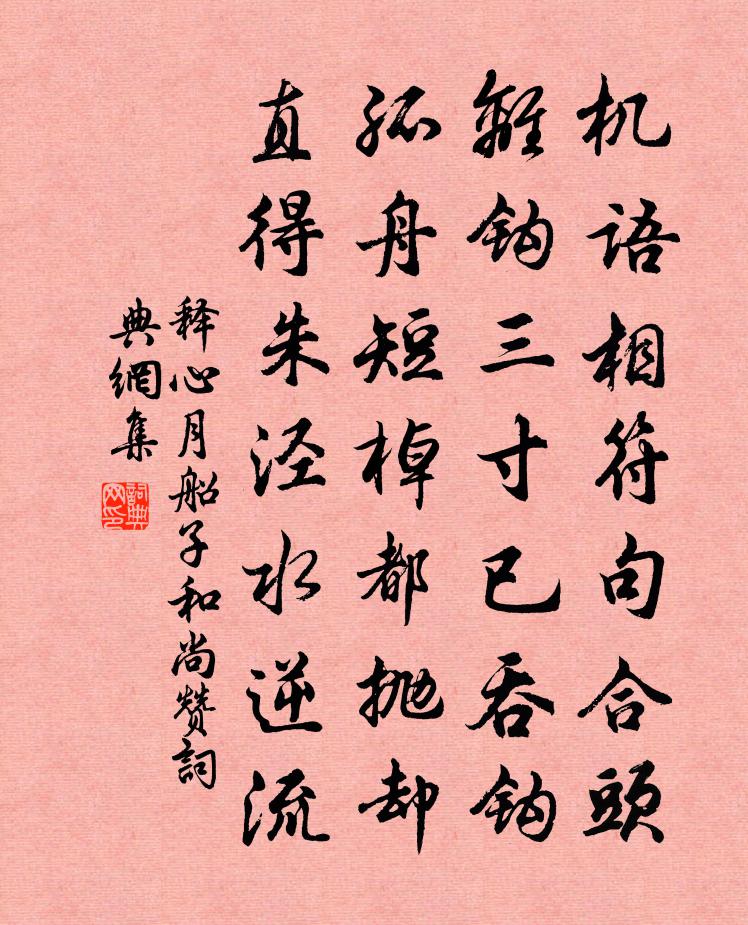 机语相符句合頭
離钩三寸已吞钩
孤舟短棹都抛却
直得朱泾水逆流
释心月船子和尚赞詞
典網集
詞典网印